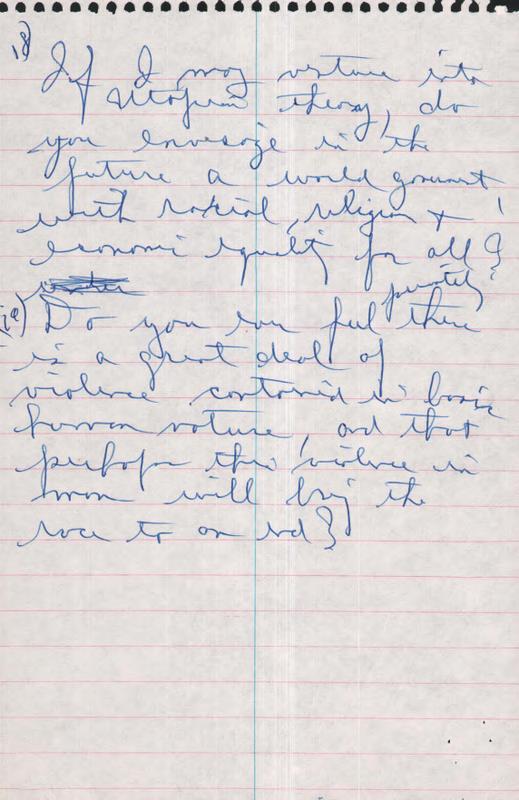 18) If I may venture into
Utopian theory, do
you envisage in the
future a world government
with racial, religion +
economic equality for all?
privately
19) Do you ever feel there
is a great deal of
violence contained in basic
human nature, and that
perhaps this violence in
man will bring the
race to an end?